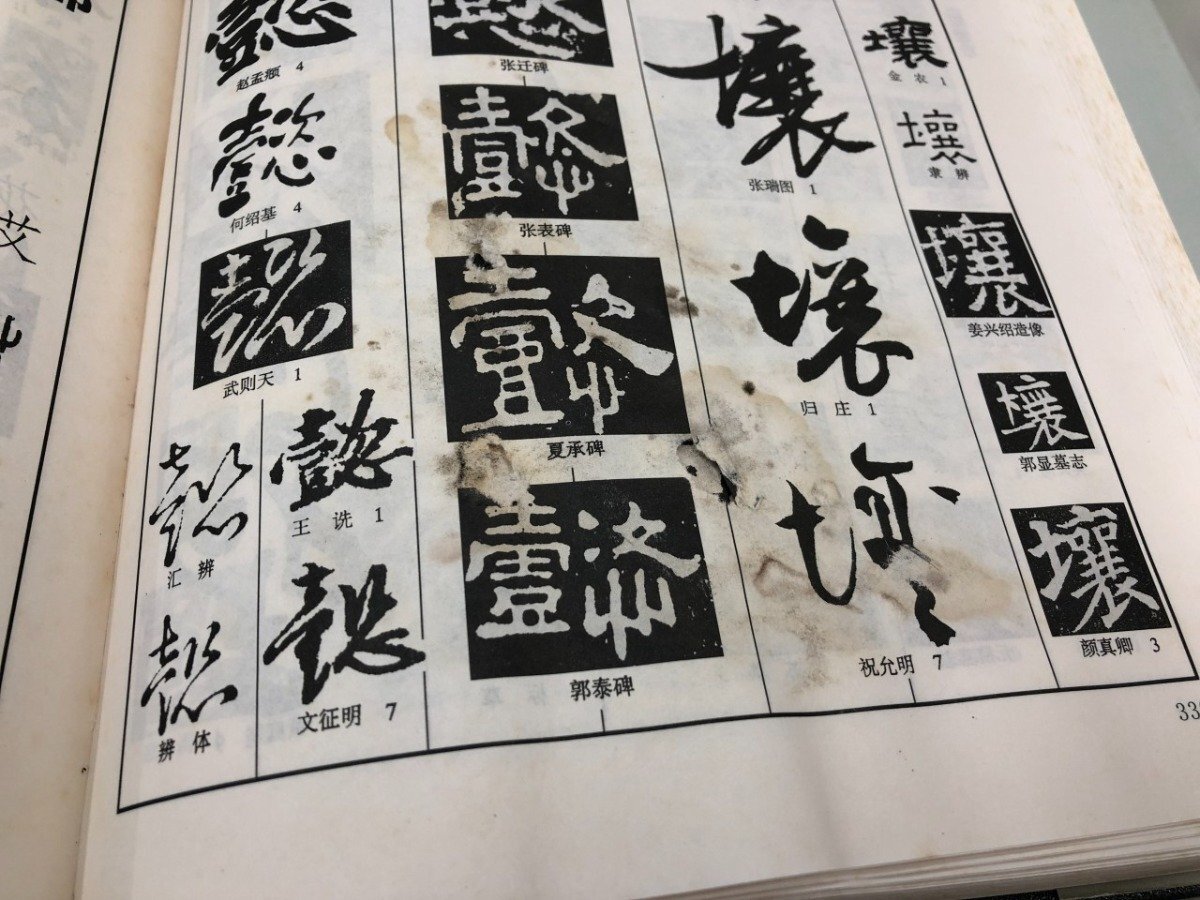 艾
懿
赵孟頫 4
懿
何绍基 4
懿
武则天 1
懿
汇辨
懿
辨体
懿
王诜 1
懿
文征明 7
懿
张迁碑
懿
张表碑
懿
夏承碑
懿
郭泰碑
壤
张瑞图 1
壤
归庄 1
壤
祝允明 7
壤
金农 1
壤
隶辨
壤
姜兴绍造像
壤
郭显墓志
壤
颜真卿 3